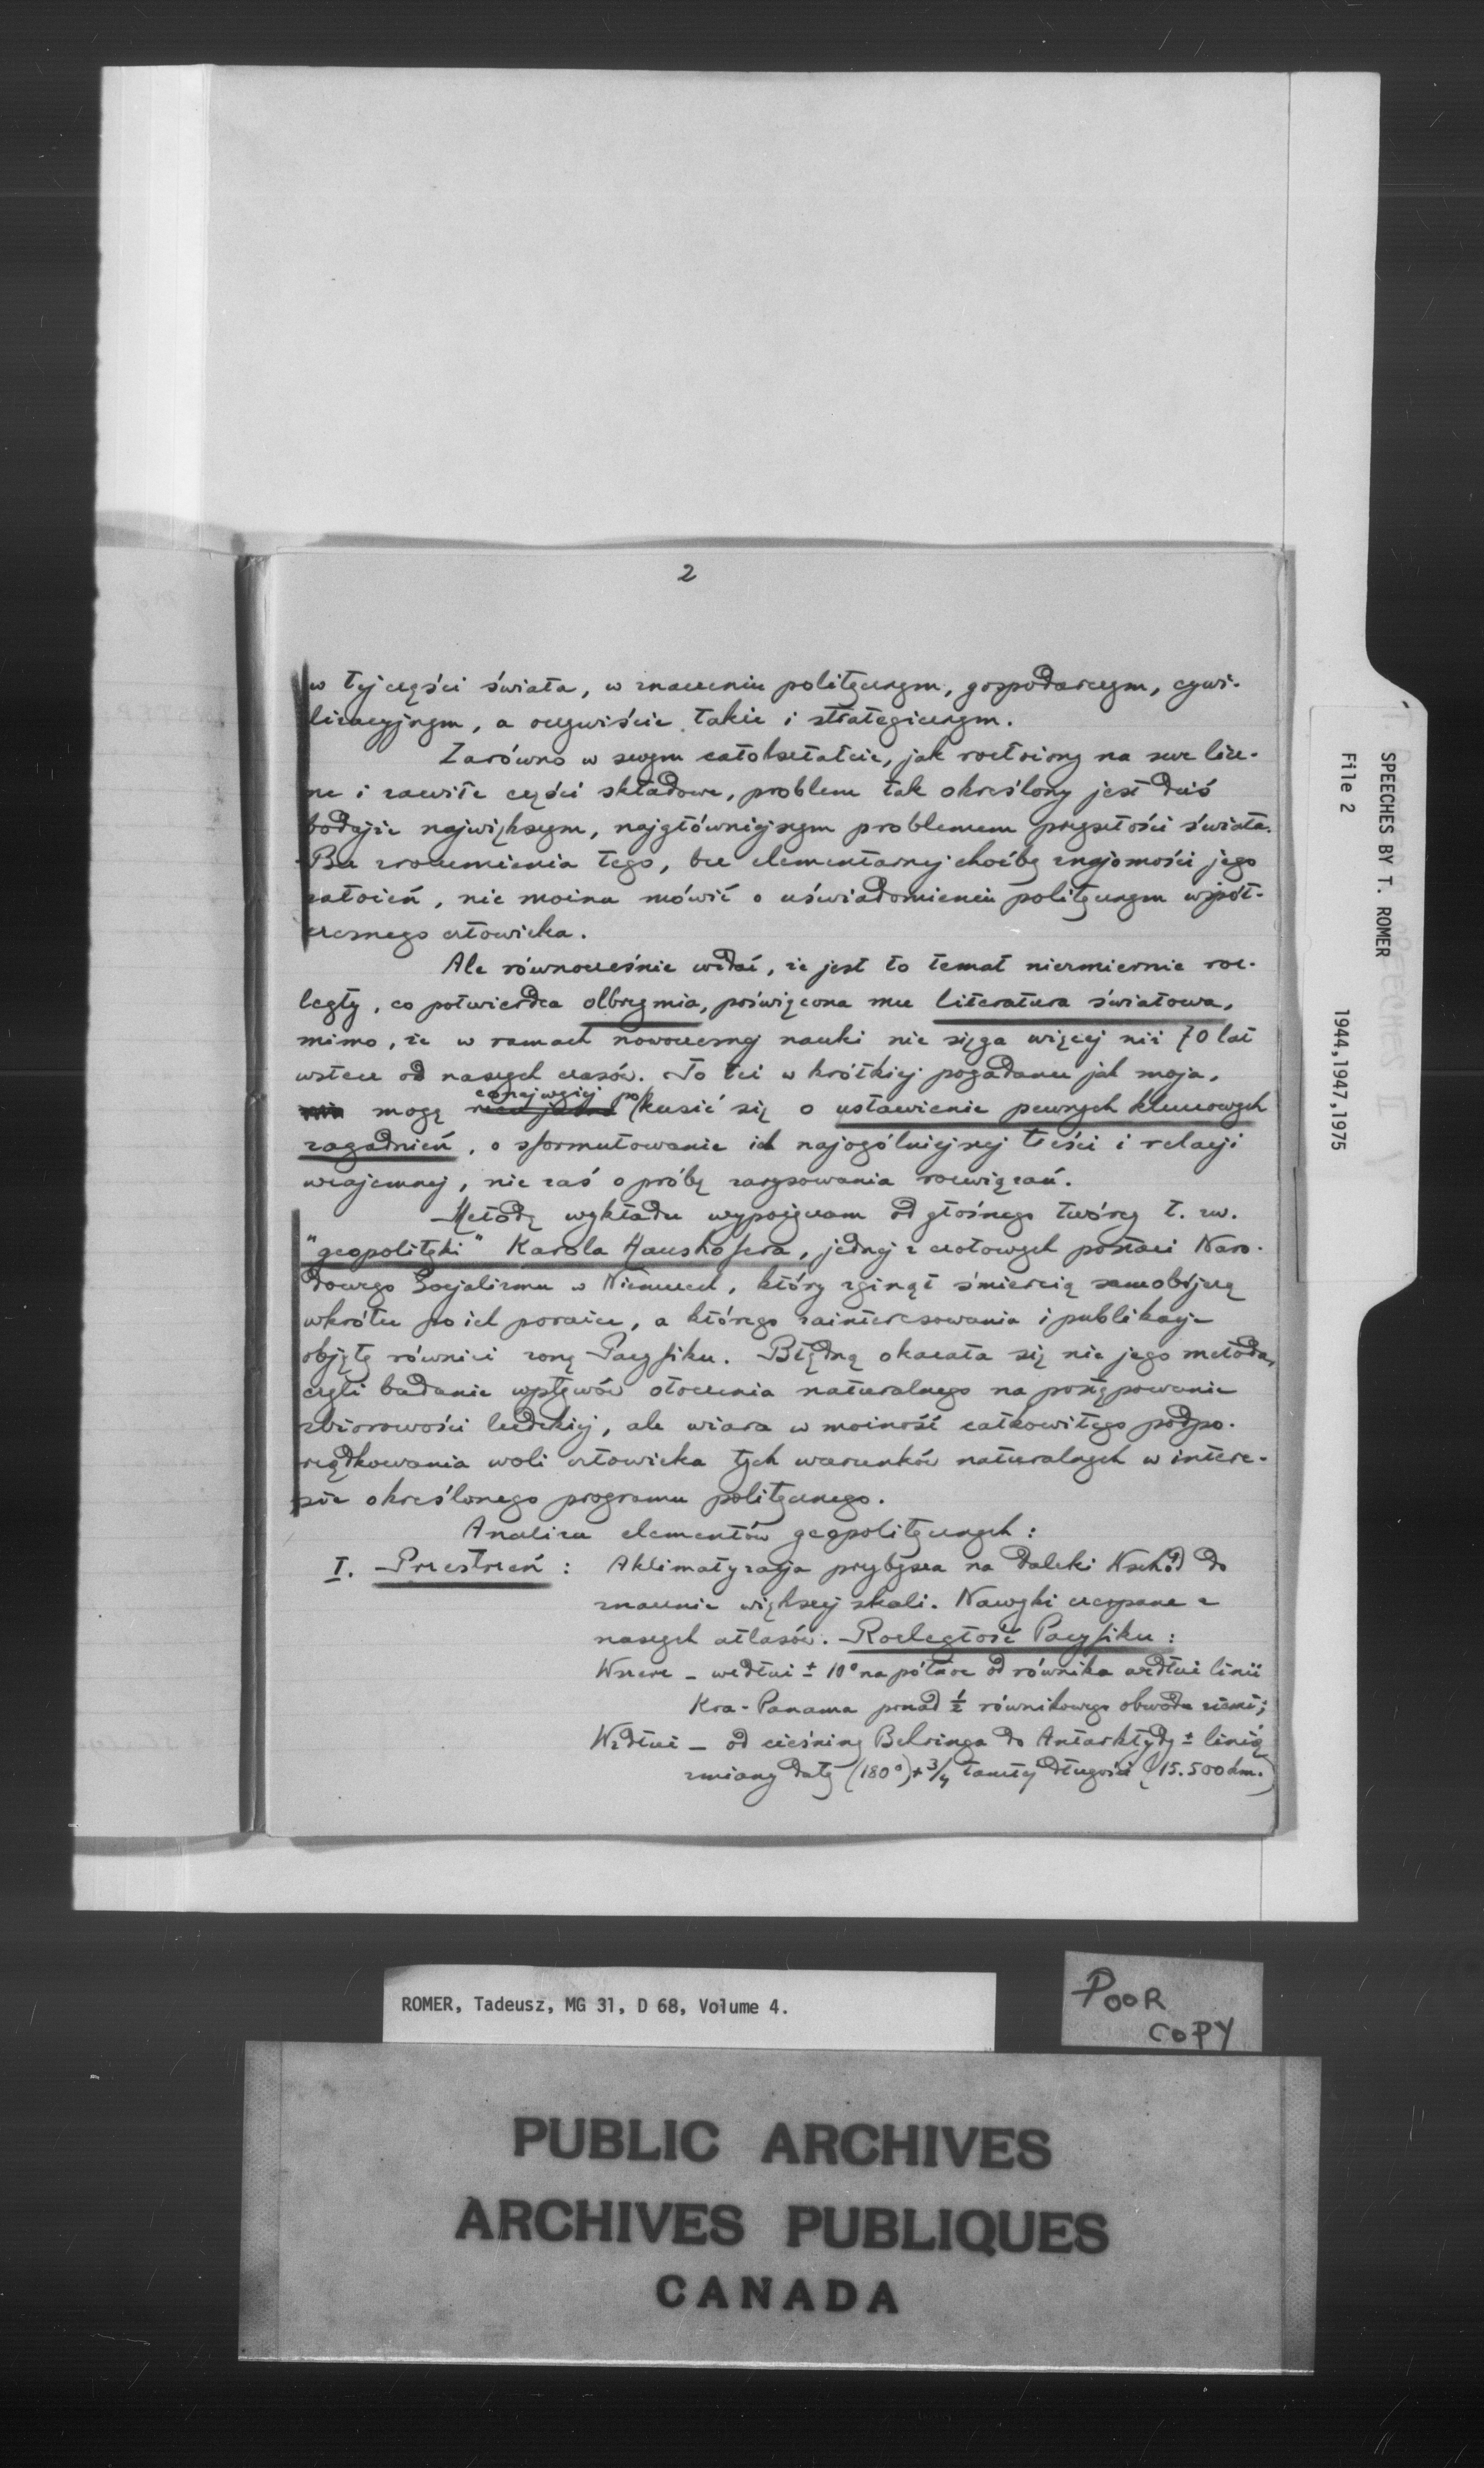 2
w tej części świata, w znaczeniu politycznym, gospodarczym, cywi-
lizacyjnym, a oczywiście także i strategicznym.
Zarówno w swym całokształcie, jak rozłożony na swe licz-
ne i zawiłe części składowe, problem tak określony jest dziś
bodajże największym, najgłówniejszym problemem przyszłości świata.
Bez zrozumienia tego, bez elementarnej choćby znajomości jego
założeń, nie można mówić o uświadomieniu politycznym współ-
czesnego człowieka.
Ale równocześnie widać, że jest to temat niezmiernie roz-
legły, co potwierdza olbrzymia, poświęcona mu literatura światowa,
mimo, że w ramach nowoczesnej nauki nie sięga więcej niż 70 lat
wstecz od naszych czasów. To też w krótkiej pogadance jak moja,
mogę co najwyżej pokusić się o ustawienie pewnych kluczowych
zagadnień, o sformułowanie ich najogólniejszej treści i relacji
wzajemnej, nie zaś o próbę zarysowania rozwiązań.
Metodę wykładu wypożyczam od głośnego twórcy t. zw.
"geopolityki" Karola Haushofera, jednej z czołowych postaci Naro-
dowego Socjalizmu w Niemczech, który zginął śmiercią samobójczą
wkrótce po ich porażce, a którego zainteresowania i publikacje
objęły również zonę Pacyfiku. Błędną okazała się nie jego metoda,
czyli badanie wpływów otoczenia naturalnego na postępowanie
zbiorowości ludzkiej, ale wiara w możność całkowitego podpo-
rządkowania woli człowieka tych warunków naturalnych w intere-
sie określonego programu politycznego.
Analiza elementów geopolitycznych:
I. Przestrzeń: Aklimatyzacja przybysza na Daleki Wschód do
znacznie większej skali. Nawyki czerpane z
naszych atlasów. Rozległość Pacyfiku:
Wszerz - wzdłuż ± 10° na północ od równika wzdłuż linii
Kra-Panama ponad ½ równikowego obwodu ziemi;
Wzdłuż - od cieśniny Behringa do Antarktydy ± linią
zmiany daty (180°) ± 3/4 tamtej długości (15.500 km.)
SPEECHES BY T. ROMER
File 2
1944,1947,1975
ROMER, Tadeusz, MG 31, D 68, Volume 4.
POOR
COPY
PUBLIC ARCHIVES
ARCHIVES PUBLIQUES
CANADA